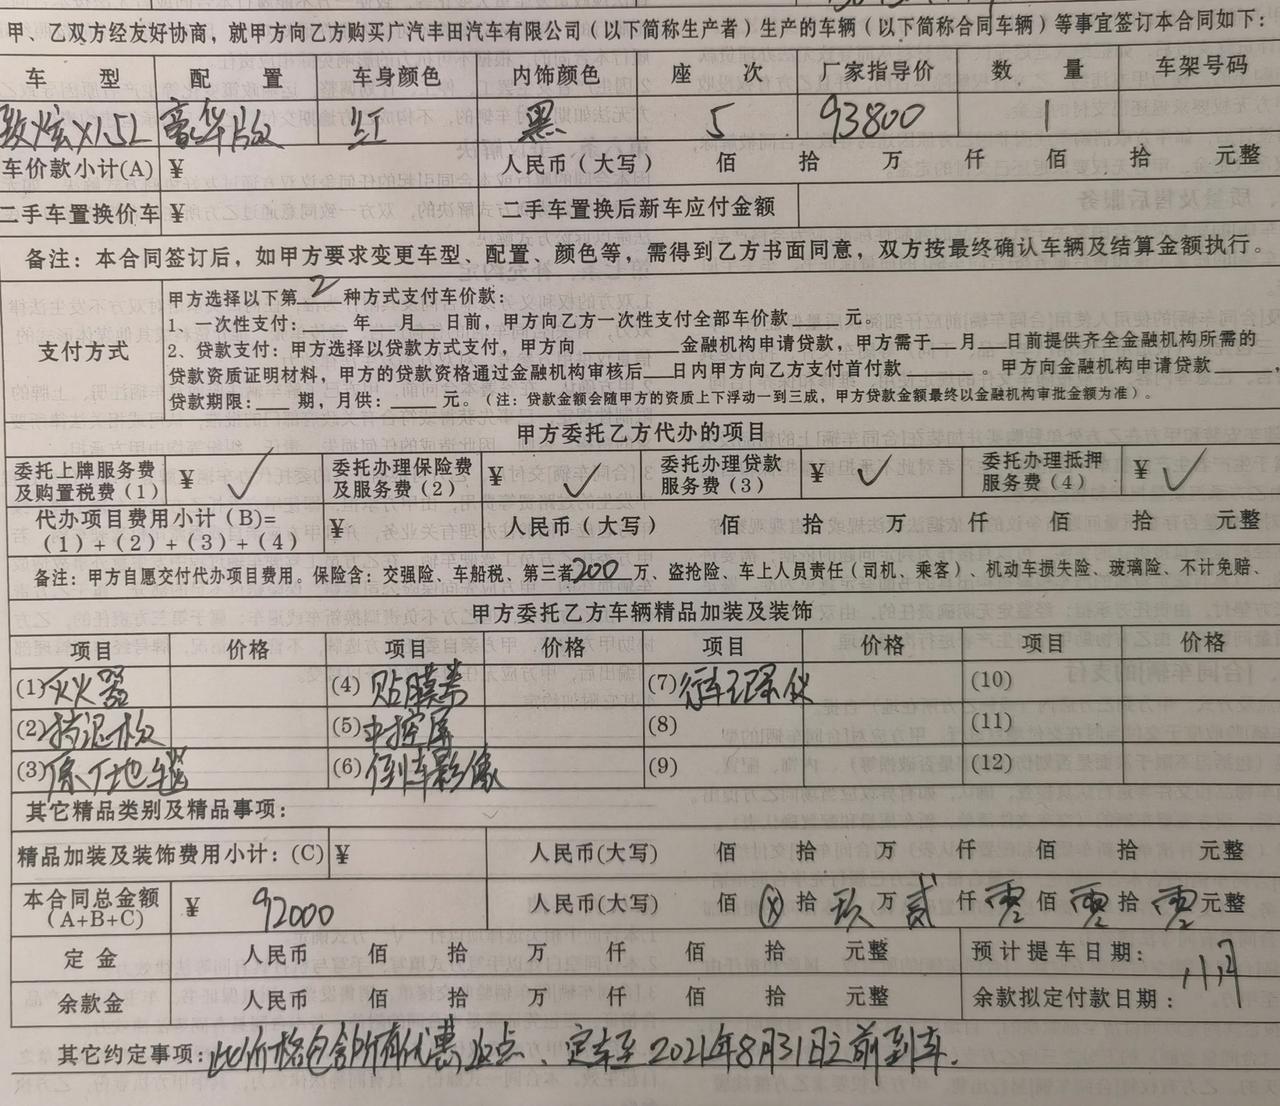 甲、乙双方经友好协商，就甲方向乙方购买广汽丰田汽车有限公司（以下简称生产者）生产的车辆（以下简称合同车辆）等事宜签订本合同如下：
车 型 配 置 车身颜色 内饰颜色 座 次 厂家指导价 数 量 车架号码
致炫X1.5L 豪华版 红 黑 5 93800 1
车价款小计(A) ¥ 人民币（大写） 佰 拾 万 仟 佰 拾 元整
二手车置换价车 ¥ 二手车置换后新车应付金额
备注：本合同签订后，如甲方要求变更车型、配置、颜色等，需得到乙方书面同意，双方按最终确认车辆及结算金额执行。
支付方式
甲方选择以下第 2 种方式支付车价款：
1、一次性支付： 年 月 日前，甲方向乙方一次性支付全部车价款 元。
2、贷款支付：甲方选择以贷款方式支付，甲方向 金融机构申请贷款，甲方需于 月 日前提供齐全金融机构所需的
贷款资质证明材料，甲方的贷款资格通过金融机构审核后 日内甲方向乙方支付首付款 。甲方向金融机构申请贷款 ，
贷款期限： 期，月供： 元。（注：贷款金额会随甲方的资质上下浮动一到三成，甲方贷款金额最终以金融机构审批金额为准）。
甲方委托乙方代办的项目
委托上牌服务费及购置税费（1） ¥ ✓ 委托办理保险费及服务费（2） ¥ ✓ 委托办理贷款服务费（3） ¥ ✓ 委托办理抵押服务费（4） ¥ ✓
代办项目费用小计（B)=
（1）+（2）+（3）+（4） ¥ 人民币（大写） 佰 拾 万 仟 佰 拾 元整
备注：甲方自愿交付代办项目费用。保险含：交强险、车船税、第三者200万、盗抢险、车上人员责任（司机、乘客）、机动车损失险、玻璃险、不计免赔、
甲方委托乙方车辆精品加装及装饰
项目 价格 项目 价格 项目 价格 项目 价格
(1)灭火器 (4) 贴膜券 (7)行车记录仪 (10)
(2)挡泥板 (5)中控屏 (8) (11)
(3)原厂地毯 (6)倒车影像 (9) (12)
其它精品类别及精品事项：
精品加装及装饰费用小计：(C) ¥ 人民币(大写) 佰 拾 万 仟 佰 拾 元整
本合同总金额
(A+B+C) ¥ 92000 人民币(大写) ⊗ 拾 玖 万 贰 仟 零 佰 零 拾 零 元整
定 金 人民币 佰 拾 万 仟 佰 拾 元整 预计提车日期：
余款金 人民币 佰 拾 万 仟 佰 拾 元整 余款拟定付款日期：
其它约定事项：此价格包含所有优惠 定车至2021年8月31日之前到车.